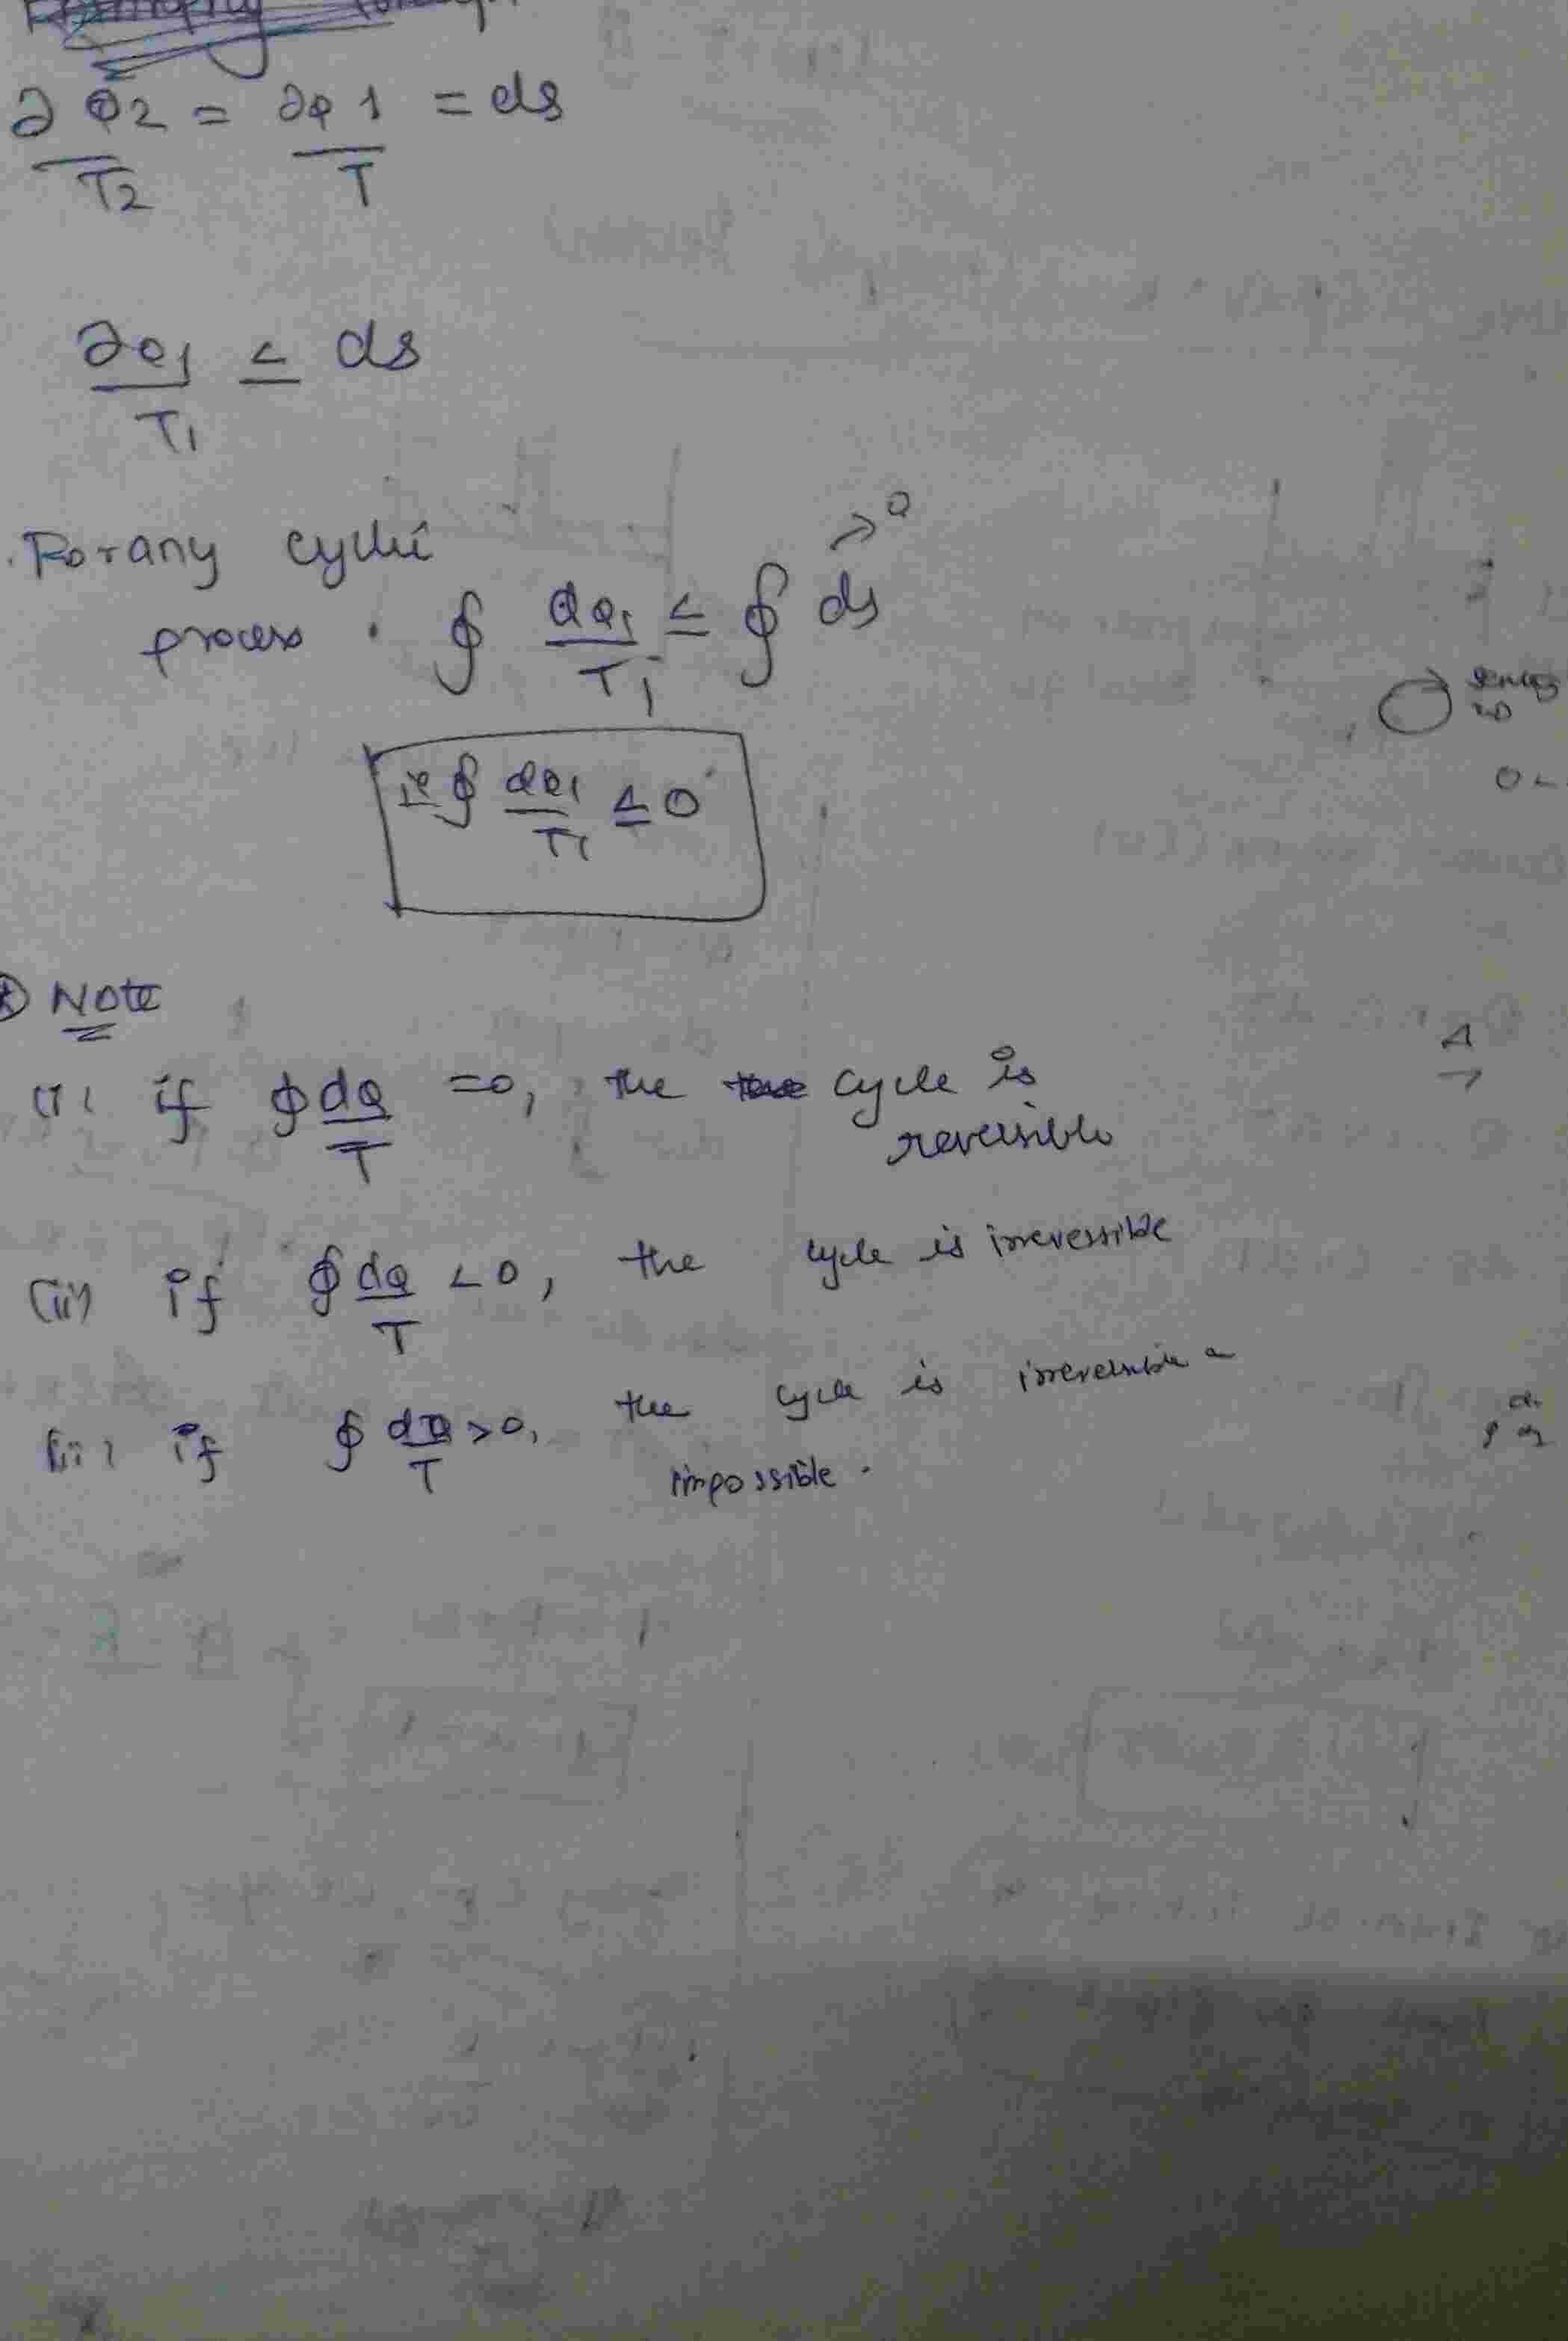 ∂Q2/T2 = ∂Q1/T = ds
∂Q1/T1 ≤ ds
For any cyclic
process . ∮ dQ1/T1 ≤ ∮ ds → 0
ie ∮ dQ1/T1 ≤ 0
Note
(i) if ∮ dQ/T = 0, the cycle is
reversible
(ii) if ∮ dQ/T < 0, the cycle is irreversible
(iii) if ∮ dQ/T > 0, the cycle is irreversible
impossible.